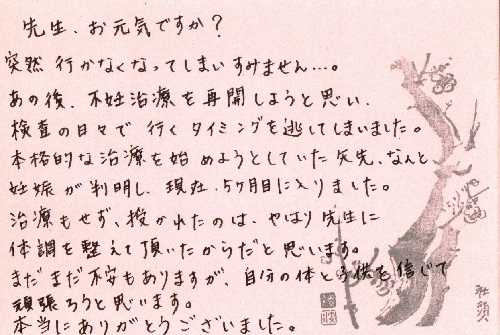 先生、お元気ですか？
突然 行かなくなってしまいすみません…。
あの後、不妊治療を再開しようと思い、
検査の日々で 行く タイミングを逃してしまいました。
本格的な治療を始めようとしていた矢先、なんと
妊娠が判明し、現在、5ヶ月目に入りました。
治療もせず、授かれたのは、やはり先生に
体調を整えて頂いたからだと思います。
まだまだ不安もありますが、自分の体と子供を信じて
頑張ろうと思います。
本当にありがとうございました。